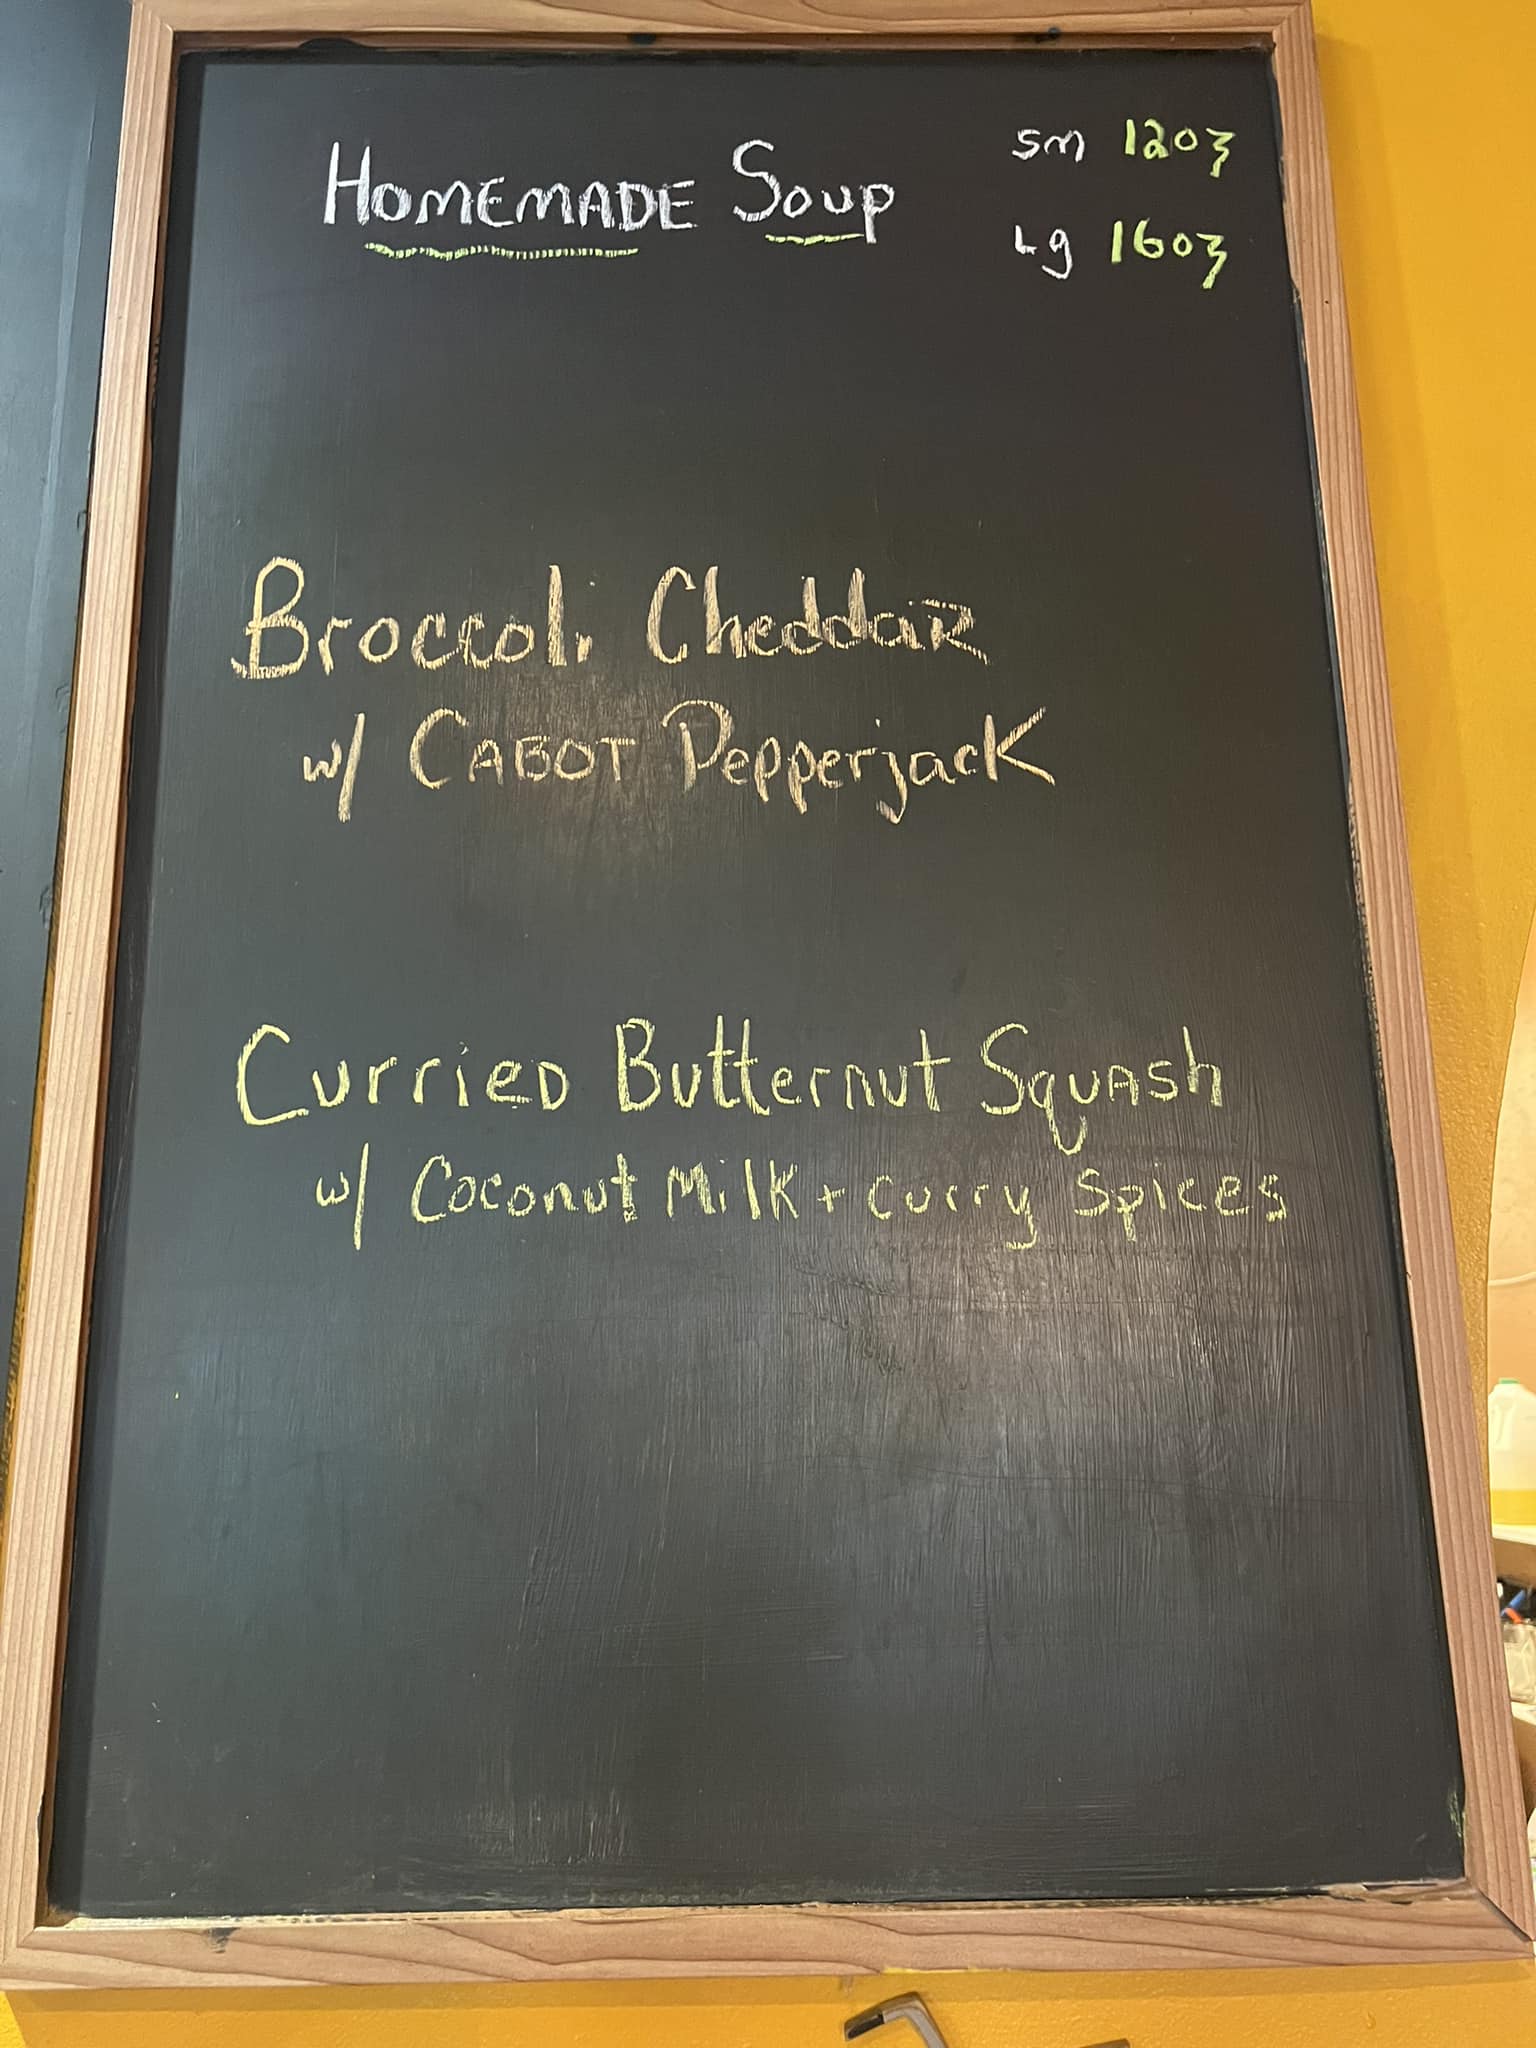 Homemade Soup
sm 12oz
Lg 16oz
Broccoli Cheddar
w/ Cabot Pepperjack
Curried Butternut Squash
w/ Coconut Milk + Curry Spices